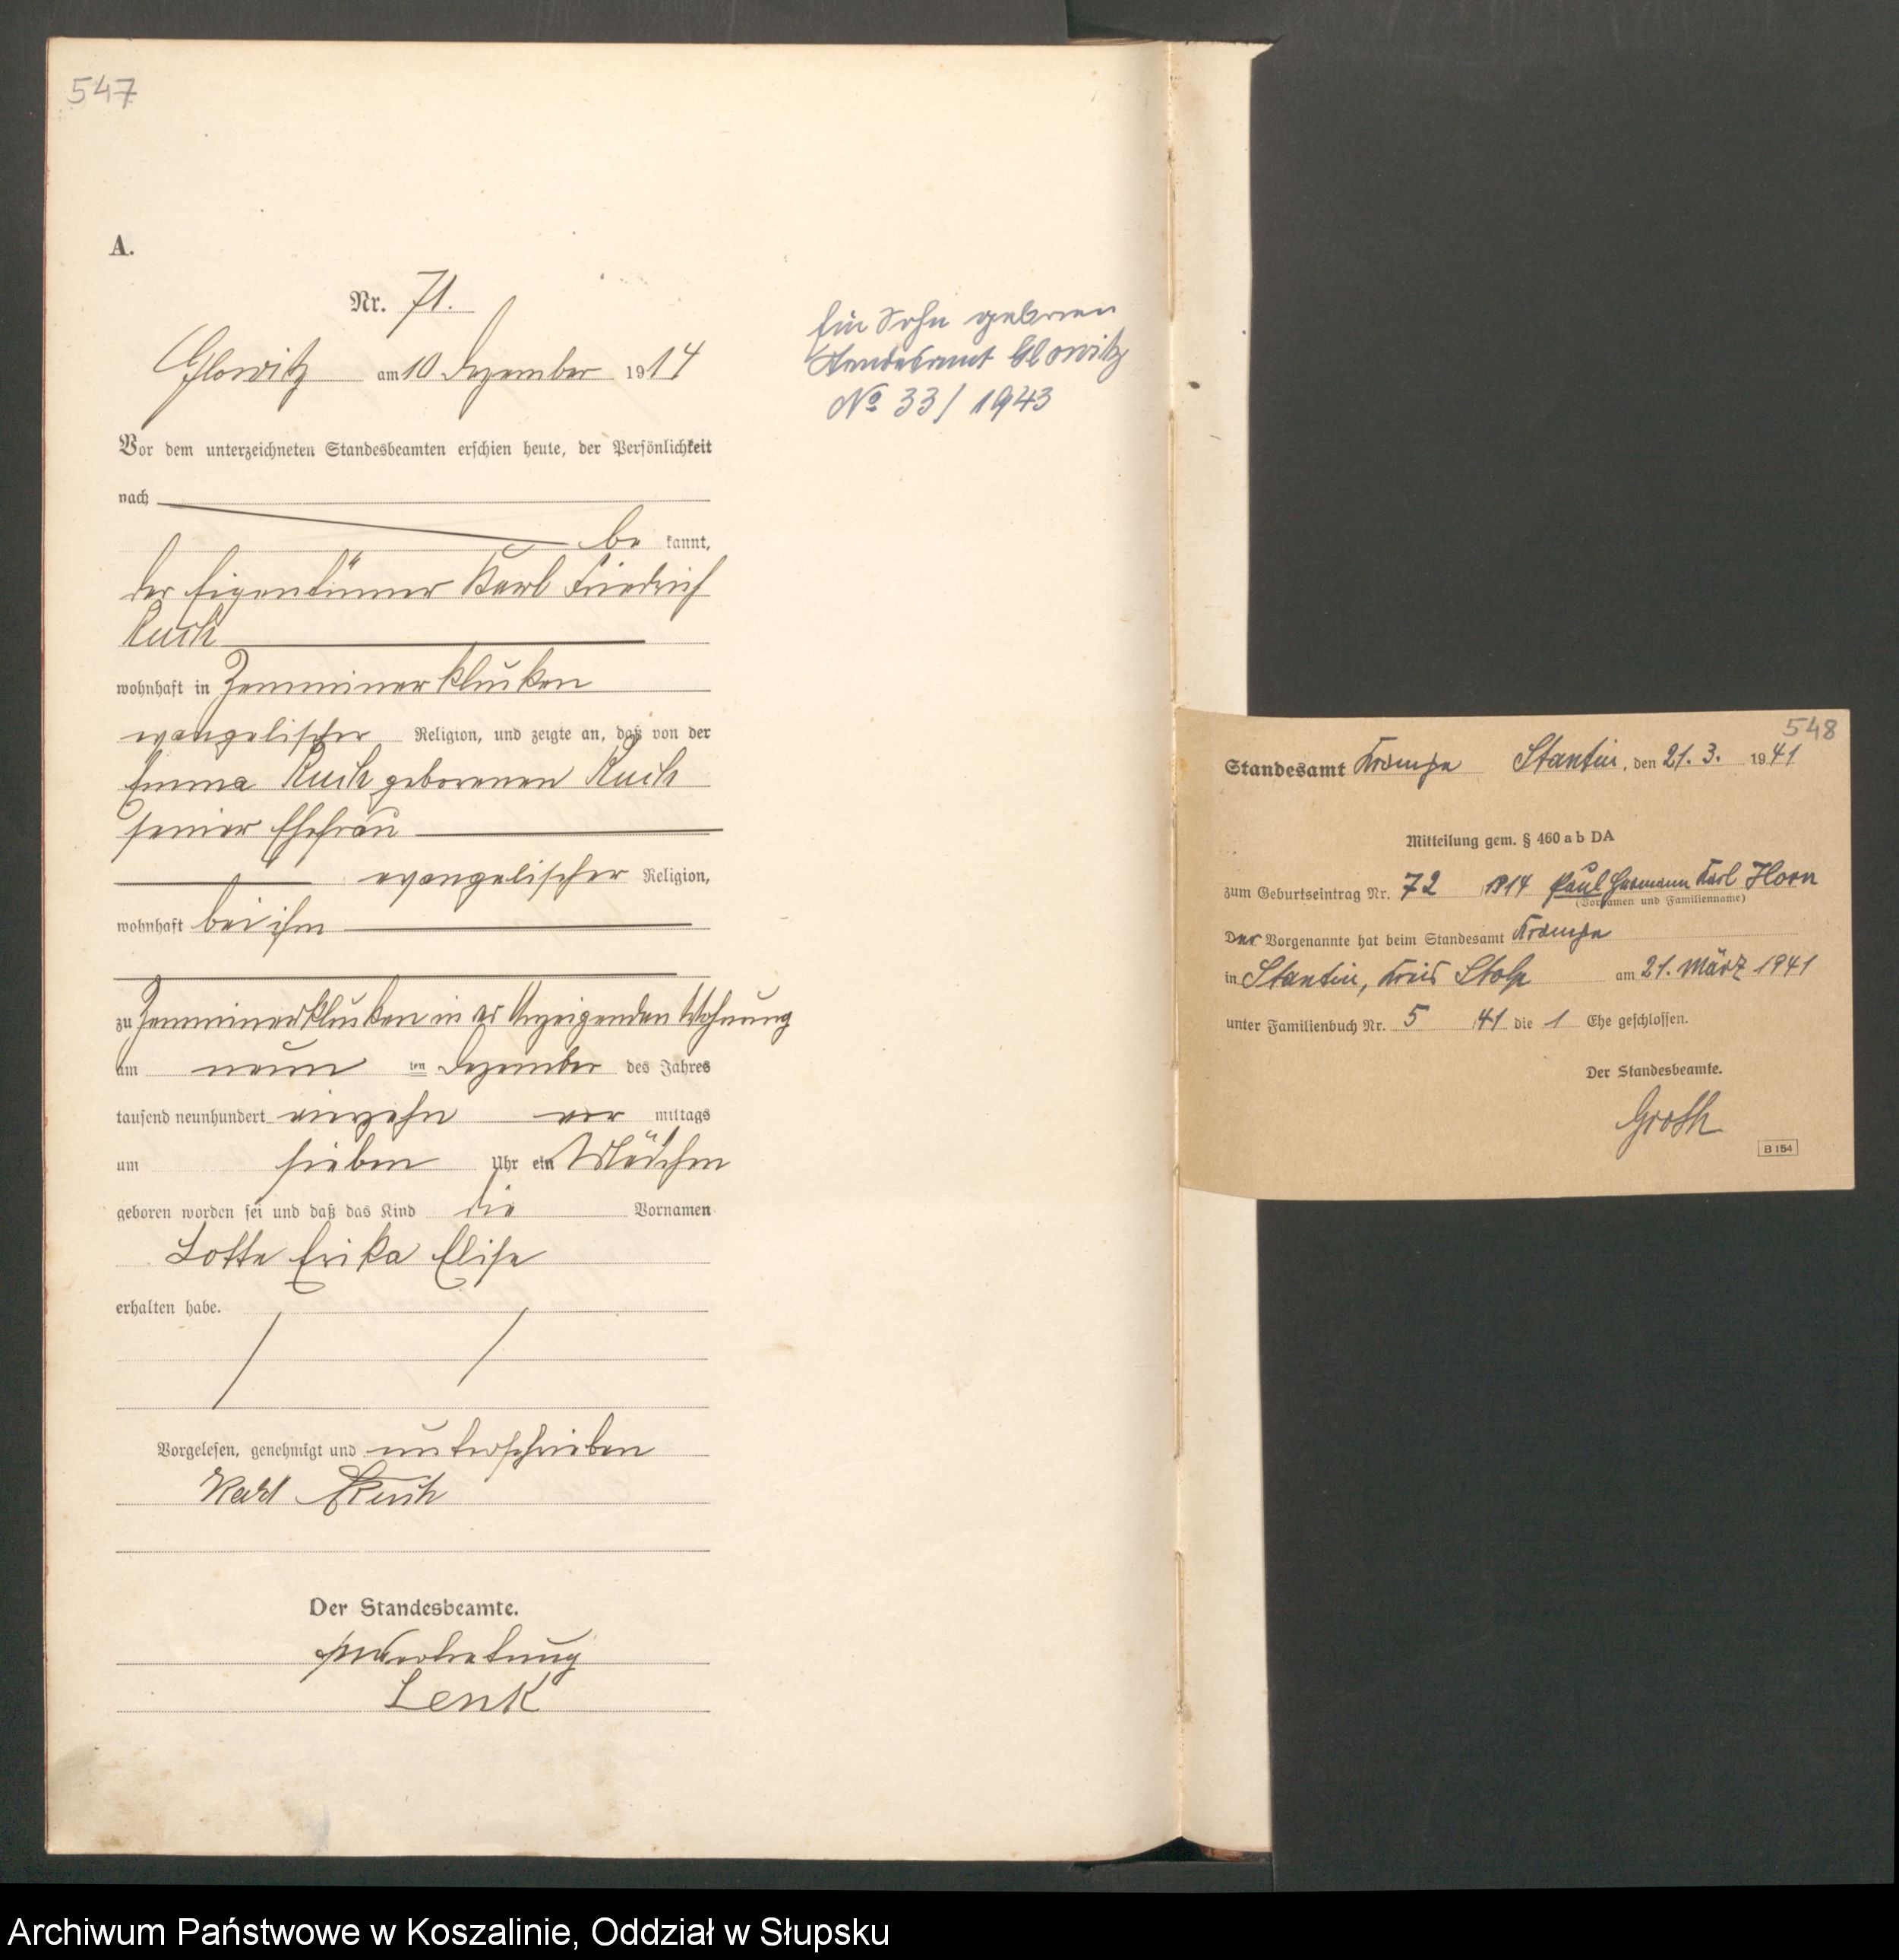 547
A.
Nr. 71.
Glowitz am 10 Dezember 1914
Vor dem unterzeichneten Standesbeamten erschien heute, der Persönlichkeit
nach
be kannt,
der Eigentümer Karl Friedrich
Kusch
wohnhaft in Zemminer Klucken
evangelischer Religion, und zeigte an, daß von der
Emma Kusch geborenen Kusch
seiner Ehefrau
evangelischer Religion,
wohnhaft bei ihm
zu Zemminerklucken in des Anzeigenden Wohnung
am neun ten Dezember des Jahres
tausend neunhundert vierzehn vor mittags
um sieben Uhr ein Mädchen
geboren worden sei und daß das Kind die Vornamen
Lotte Erika Elise
erhalten habe.
Vorgelesen, genehmigt und unterschrieben
Karl Kusch
Der Standesbeamte.
In Vertretung
Lenk
Ein Sohn geboren
Standesamt Glowitz
No 33/1943
548
Standesamt Krampe Stantin, den 21. 3. 1941
Mitteilung gem. § 460 a b DA
zum Geburtseintrag Nr. 72 1914 Paul Hermann Karl Horn
(Vornamen und Familienname)
Der Vorgenannte hat beim Standesamt Krampe
in Stantin, Kreis Stolp am 21. März 1941
unter Familienbuch Nr. 5 /41 die 1 Ehe geschlossen.
Der Standesbeamte.
Groth
B 154
Archiwum Państwowe w Koszalinie, Oddział w Słupsku